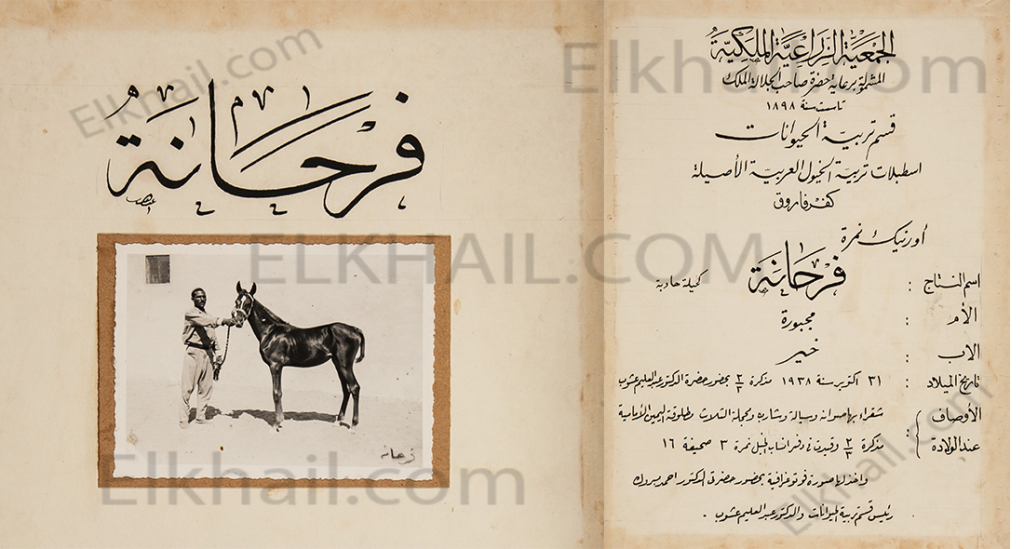 فرحانة
فرحانة
الجمعية الزراعية الملكية
المشمولة برعاية حضرة صاحب الجلالة الملك
تأسست سنة ١٨٩٨
قسم تربية الحيوانات
اسطبلات تربية الخيول العربية الأصيلة
كفر فاروق
أورنيك نمرة
اسم النتاج : فرحانة كحيلة جلابية
الأم : مجبورة
الأب : خير
تاريخ الميلاد : ٣١ أكتوبر سنة ١٩٣٨ مذكرة ٢/٣ بحضور حضرة الدكتور عبد العليم عشوب
الأوصاف عند الولادة : شقراء بها صوانه وسيالة وشاربه ومحجلة الثلاث ومطلوقة اليمين الأمامية
مذكرة ٢/٣ وقيدت فى دفتر انساب الخيل نمرة ٣ صحيفة ١٦
واخذ لها صورة فوتوغرافية بحضور حضرتى الدكتور احمد مبروك
رئيس قسم تربية الحيوانات والدكتور عبد العليم عشوب .
Elkhail.com
Elkhail.com
ELKHAIL.COM
Elkhail.com
Elkhail.com